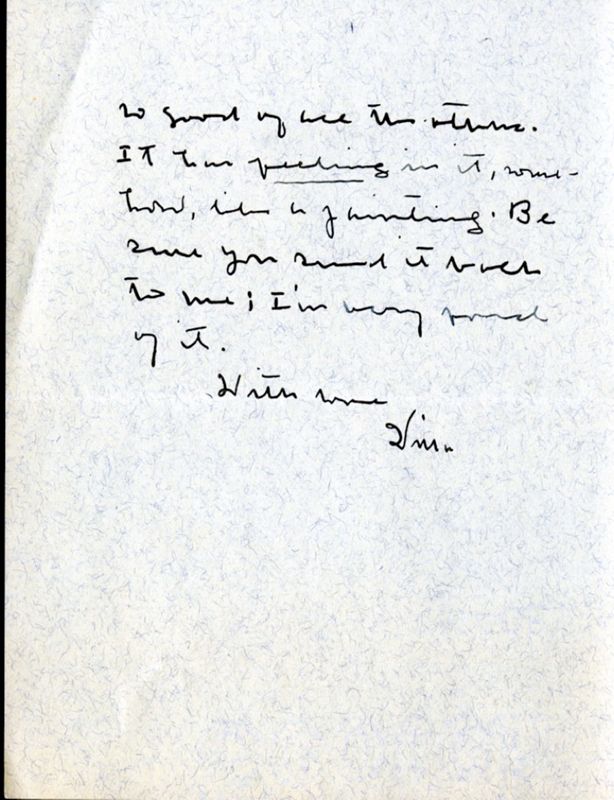 so good of all the others.
It has feeling in it, some-
how, like a painting. Be
sure you send it back
to me; I'm very
of it.
With love